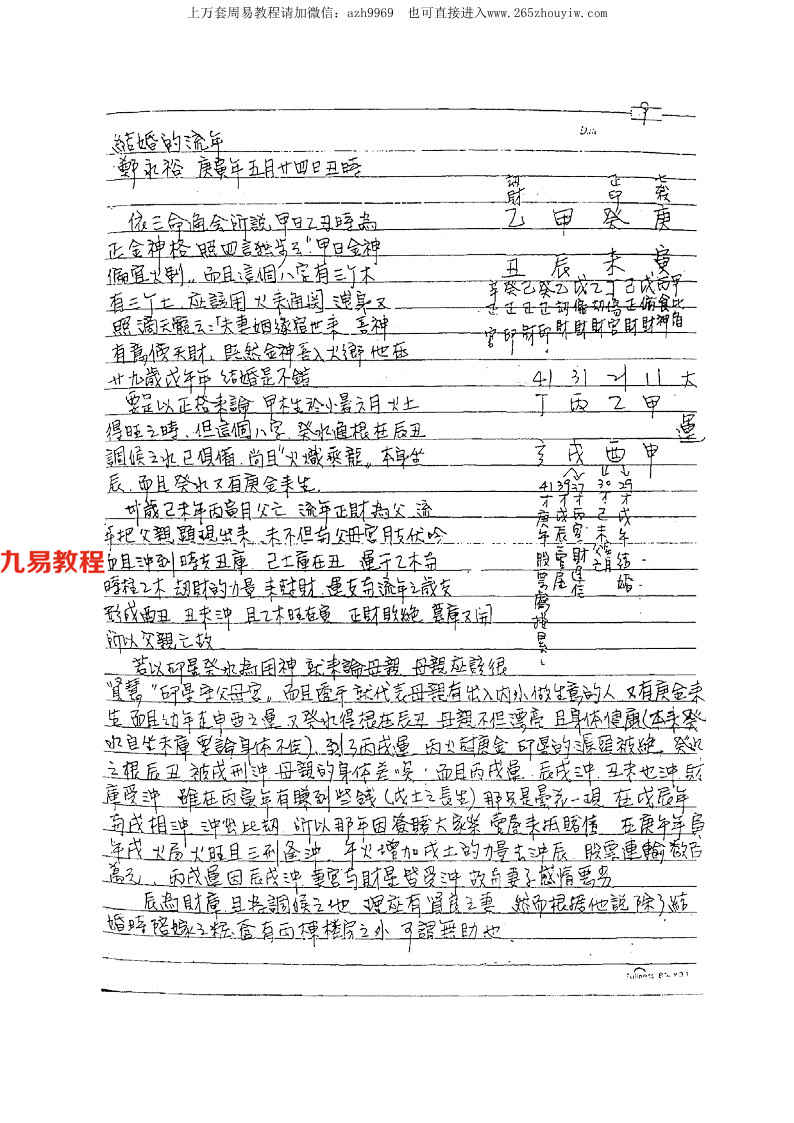 上万套周易教程请加微信：azh9969　也可直接进入www.265zhouyiw.com
9
Date
結婚的流年
鄭永裕 庚寅年五月廿四日丑時
劫財 正印 七殺
乙 甲 癸 庚
丑 辰 未 寅
依三命通会所説,甲日乙丑時為
正金神格 照四言独步云:"甲日金神
偏宜火制"。而且這個八字有三个木
有三个土,应該用火來通関 洩身 又
照滴天髓云:"夫妻姻緣宿世來 喜神
有意傍天財,既然金神喜入火鄉 他在
廿九歲戊午年 結婚是不錯
辛癸己 癸乙 戊乙丁 己戊丙甲
41 31 21 11 大
丁 丙 乙 甲
運
亥 戌 酉 申
41才庚午 股票
39才戊辰
37才丙寅 財運
30才己未 父亡
29才戊午 結婚
要是以正格來論 甲木生於小暑六月火土
得旺之時,但這個八字,癸水通根在辰丑
調候之水已俱備,尚且"火熾乘龍",本身坐
辰,而且癸水又有庚金來生.
卅歲己未年丙寅月父亡 流年正財為父,流
年把父親顯現出來,未不但与父母宮月支伏吟
而且冲到時支丑庫 己土庫在丑 運干乙木与
時柱乙木 劫財的力量來尅財,運支与流年之歲支
形成酉丑 丑未冲 且乙木旺在寅 正財敗絕 墓庫又開
所以父親亡故
若以印星癸水為用神 就來論母親 母親应該很
賢慧"印星守父母宮" 而且透干就代表母親有出入內外做生意的人 又有庚金來
生 而且幼年走申酉之運 又癸水得根在辰丑 母親不但漂亮 且身体健康(本來癸
水自坐未庫 要論身体不佳),到了丙戌運 丙火尅庚金 印星的源頭被絕,癸水
之根辰丑 被戌刑冲 母親的身体差矣,而且丙戌運,辰戌冲,丑未也冲 財
庫受冲 雖在丙寅年有賺到些錢(戊土之長生)那只是曇花一現 在戊辰年
与戌相冲 冲出比劫 所以那年因簽賭大家樂 賣屋來抵賭債 在庚午年寅
午戌 火局 火旺且三刑逢冲 午火增加戌土的力量去冲辰 股票連輸数百
萬元,丙戌運因辰戌冲 妻宮与財星皆受冲 故与妻子感情悪劣
辰為財庫 且為調候之地 理应有賢良之妻 然而根据他説 除了結
婚時陪嫁之粧奩有兩棟樓房之外 可謂無助也
九易教程